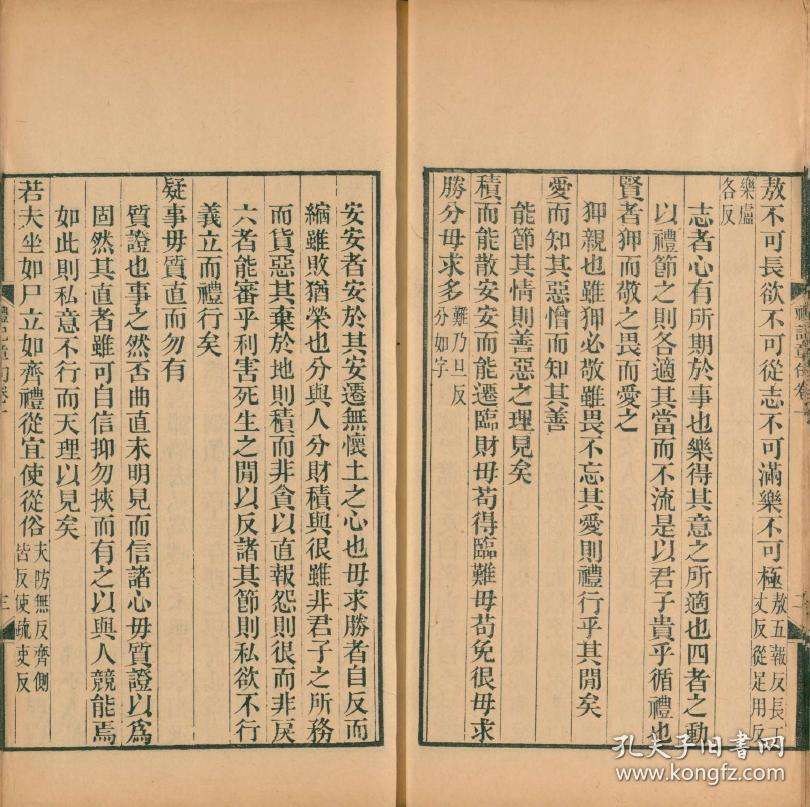 敖不可長欲不可從志不可滿樂不可極敖五報反長丁丈反從足用反
樂盧各反
志者心有所期於事也樂得其意之所適也四者之動
以禮節之則各適其當而不流是以君子貴乎循禮也
賢者狎而敬之畏而愛之
狎親也雖狎必敬雖畏不忘其愛則禮行乎其閒矣
愛而知其惡憎而知其善
能節其情則善惡之理見矣
積而能散安安而能遷臨財毋苟得臨難毋苟免很毋求
勝分毋求多難乃旦反分如字
安安者安於其安遷無懷土之心也毋求勝者自反而
縮雖敗猶榮也分與人分財積與很雖非君子之所務
而貨惡其棄於地則積而非貪以直報怨則很而非戾
六者能審乎利害死生之閒以反諸其節則私欲不行
義立而禮行矣
疑事毋質直而勿有
質證也事之然否曲直未明見而信諸心毋質證以爲
固然其直者雖可自信抑勿挾而有之以與人競能焉
如此則私意不行而天理以見矣
若夫坐如尸立如齊禮從宜使從俗夫防無反齊側皆反使疏吏反
禮記章句卷一
三
孔夫子旧书网
www.kongfz.com